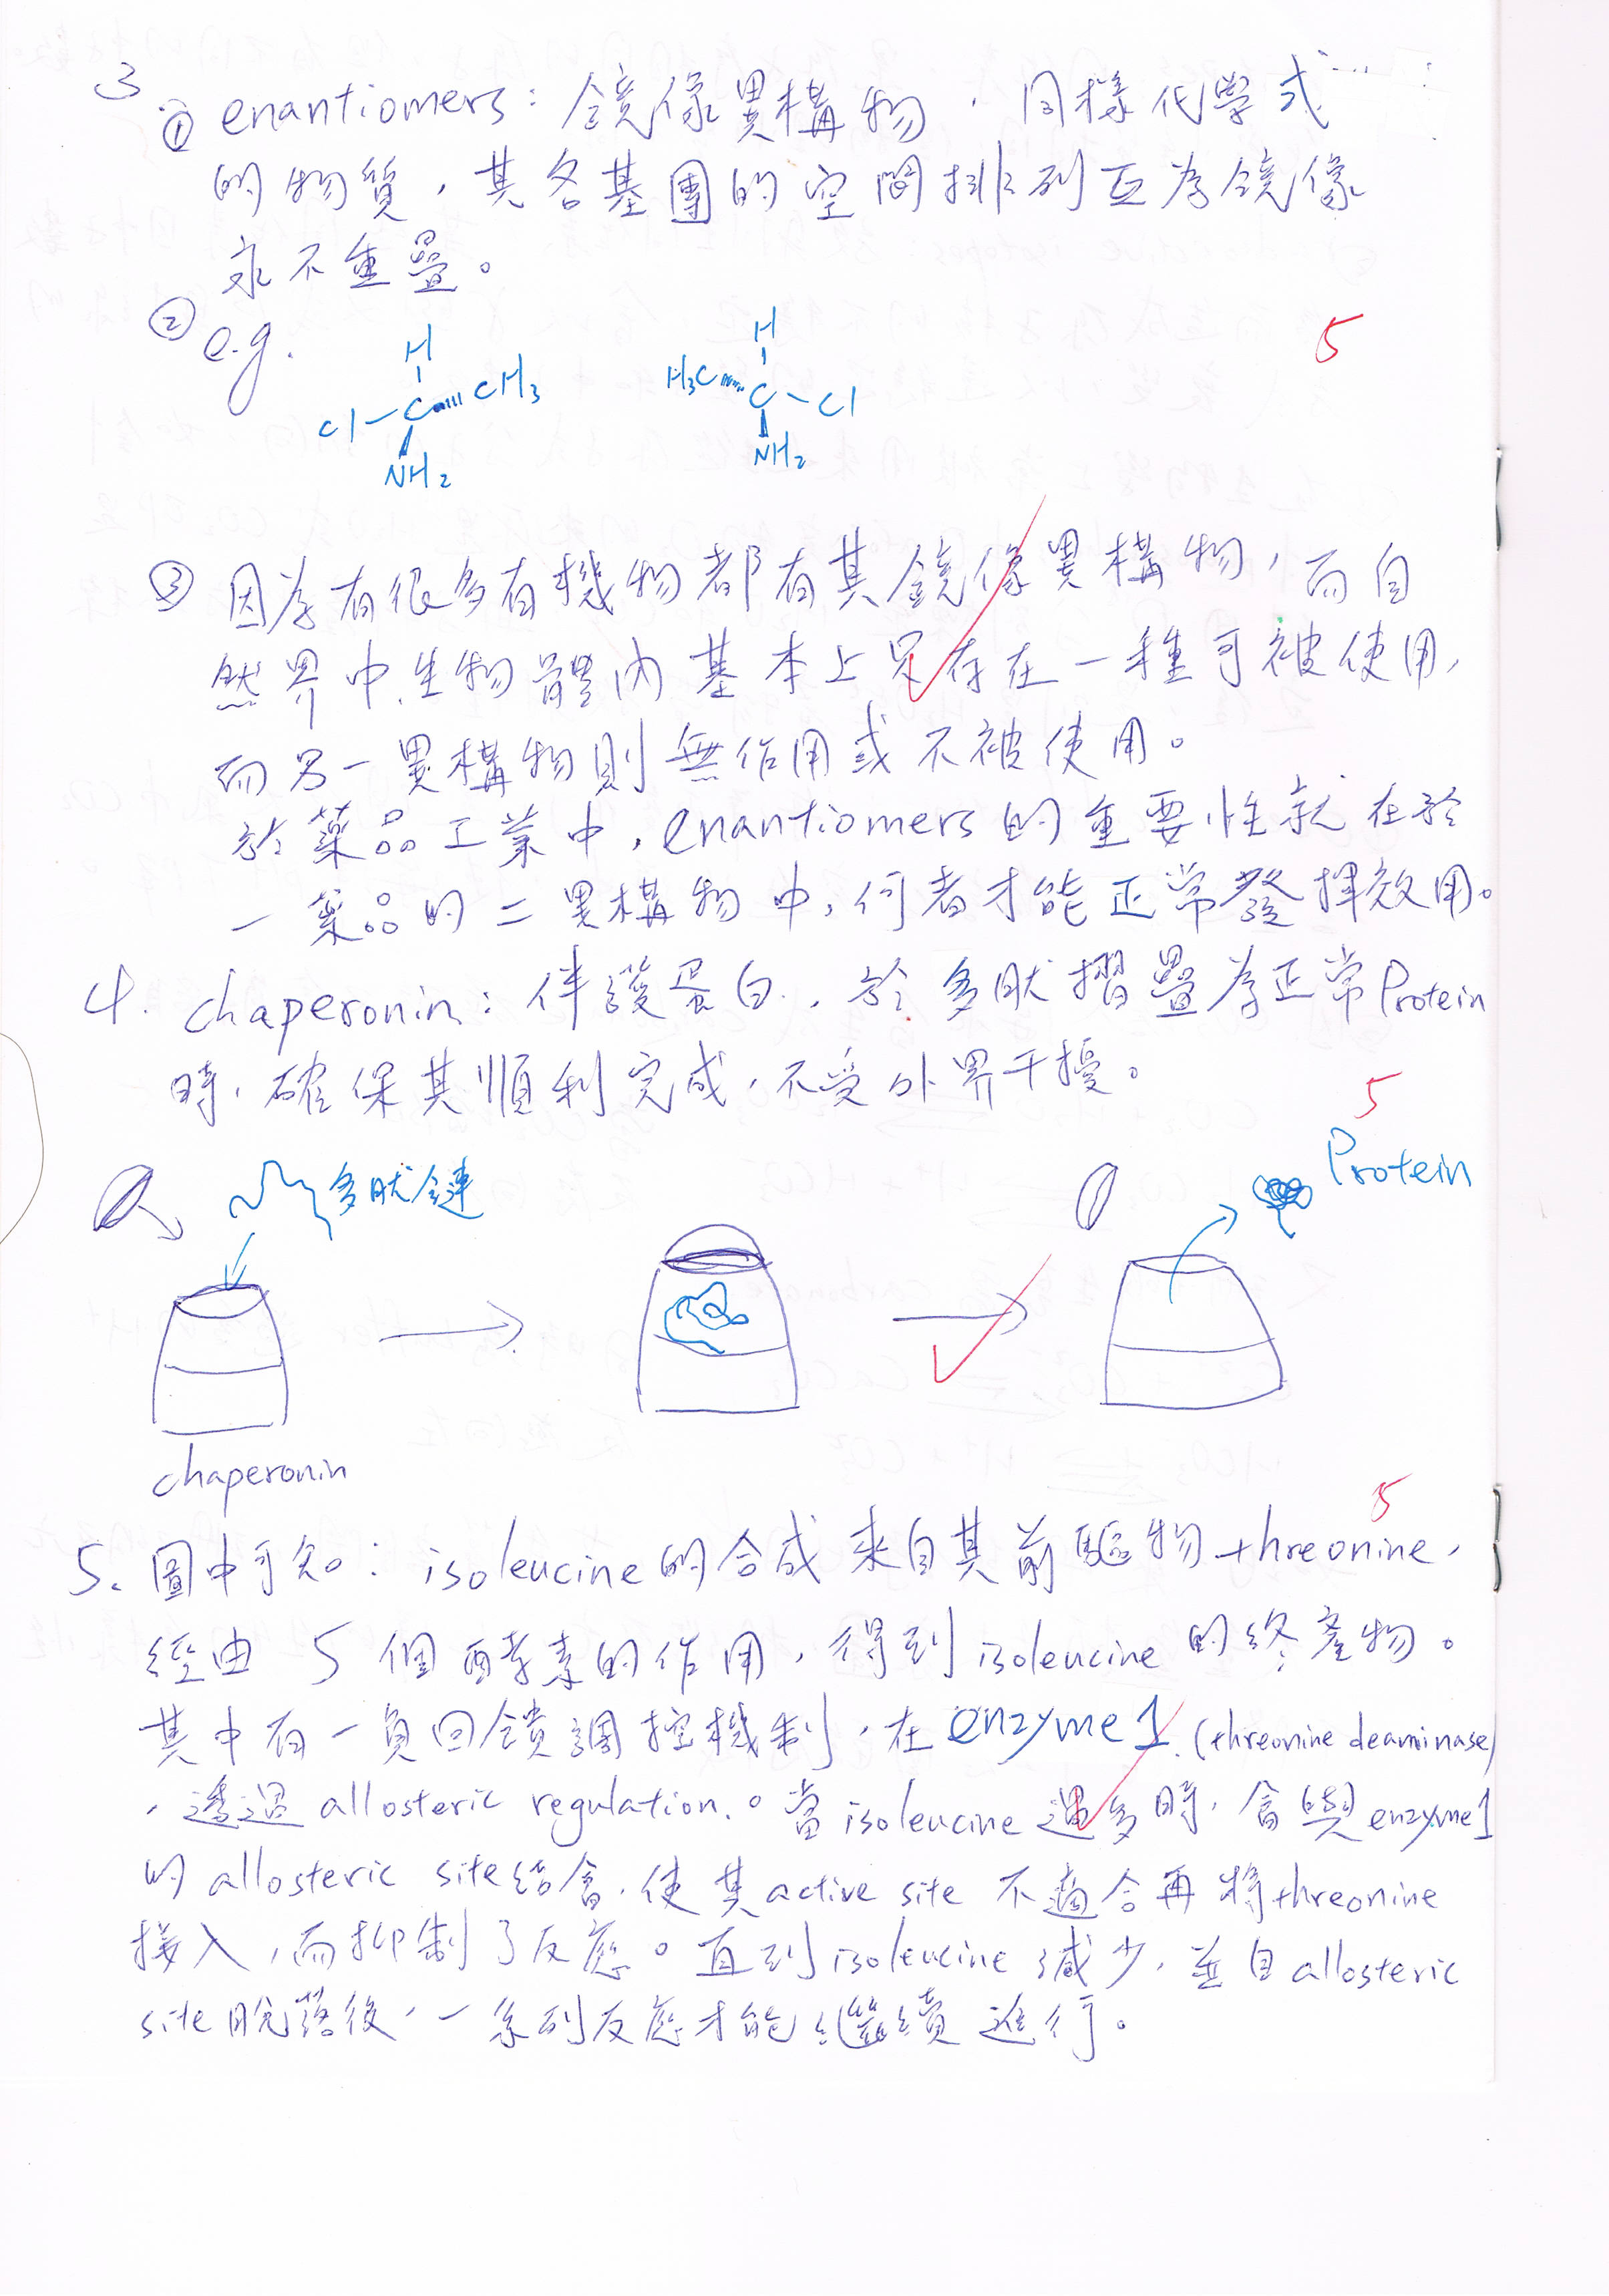 3
① enantiomers: 鏡像異構物，同樣化學式
的物質，其各基團的空間排列互為鏡像
永不重疊。
② e.g.
5
H
Cl-C-CH3
NH2
H
H3C-C-Cl
NH2
③ 因為有很多有機物都有其鏡像異構物，而自
然界中生物體內基本上只存在一種可被使用，
而另一異構物則無作用或不被使用。
於藥品工業中，enantiomers的重要性就在於
一藥品的二異構物中，何者才能正常發揮效用。
4. chaperonin: 伴護蛋白，於多肽摺疊為正常Protein
時，確保其順利完成，不受外界干擾。
5
多肽鏈
Protein
chaperonin
5
5. 圖中可知：isoleucine的合成來自其前驅物threonine，
經由 5 個酵素的作用，得到isoleucine的終產物。
其中有一負回饋調控機制，在enzyme1 (threonine deaminase)
，透過allosteric regulation.。當isoleucine過多時，會與enzyme1
的allosteric site結合，使其active site 不適合再將threonine
接入，而抑制了反應。直到isoleucine減少，並自allosteric
site脫落後，一系列反應才能繼續進行。